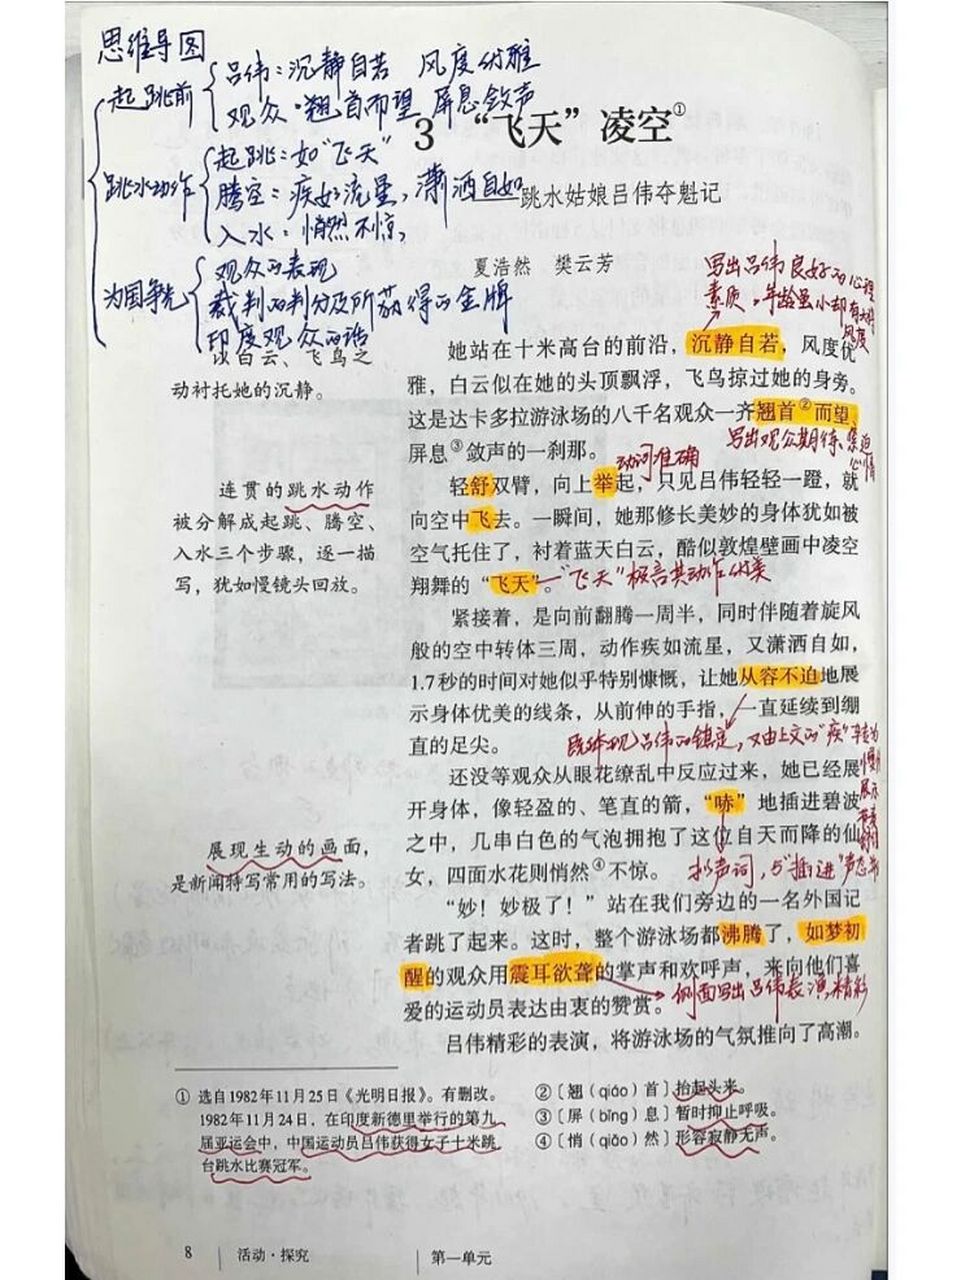 思维导图
起跳前
吕伟：沉静自若 风度优雅
观众：翘首而望 屏息敛声
跳水动作
起跳：如“飞天”
腾空：疾如流星，潇洒自如
入水：悄然不惊，
为国争先
观众的表现
裁判的判分及所获得的金牌
印度观众的话
3 “飞天”凌空①
跳水姑娘吕伟夺魁记
夏浩然 樊云芳
写出吕伟良好的心理
素质，年龄虽小却有大将
风度
以白云、飞鸟之
动衬托她的沉静。
她站在十米高台的前沿，沉静自若，风度优
雅，白云似在她的头顶飘浮，飞鸟掠过她的身旁。
这是达卡多拉游泳场的八千名观众一齐翘首②而望、
屏息③敛声的一刹那。
写出观众期待、紧迫
心情
动词准确
连贯的跳水动作
被分解成起跳、腾空、
入水三个步骤，逐一描
写，犹如慢镜头回放。
轻舒双臂，向上举起，只见吕伟轻轻一蹬，就
向空中飞去。一瞬间，她那修长美妙的身体犹如被
空气托住了，衬着蓝天白云，酷似敦煌壁画中凌空
翔舞的“飞天”。
“飞天”极言其动作优美
紧接着，是向前翻腾一周半，同时伴随着旋风
般的空中转体三周，动作疾如流星，又潇洒自如，
1.7秒的时间对她似乎特别慷慨，让她从容不迫地展
示身体优美的线条，从前伸的手指，一直延续到绷
直的足尖。
既体现吕伟的镇定，又由上文的“疾”
还没等观众从眼花缭乱中反应过来，她已经展
开身体，像轻盈的、笔直的箭，“哧”地插进碧波
之中，几串白色的气泡拥抱了这位自天而降的仙
女，四面水花则悄然④不惊。
拟声词，与“插进”声态
展现生动的画面，
是新闻特写常用的写法。
“妙！妙极了！”站在我们旁边的一名外国记
者跳了起来。这时，整个游泳场都沸腾了，如梦初
醒的观众用震耳欲聋的掌声和欢呼声，来向他们喜
爱的运动员表达由衷的赞赏。
侧面写出吕伟表演精彩
吕伟精彩的表演，将游泳场的气氛推向了高潮。
① 选自1982年11月25日《光明日报》。有删改。
1982年11月24日，在印度新德里举行的第九
届亚运会中，中国运动员吕伟获得女子十米跳
台跳水比赛冠军。
②〔翘（qiáo）首〕抬起头来。
③〔屏（bǐng）息〕暂时抑止呼吸。
④〔悄（qiǎo）然〕形容寂静无声。
8 活动·探究 第一单元